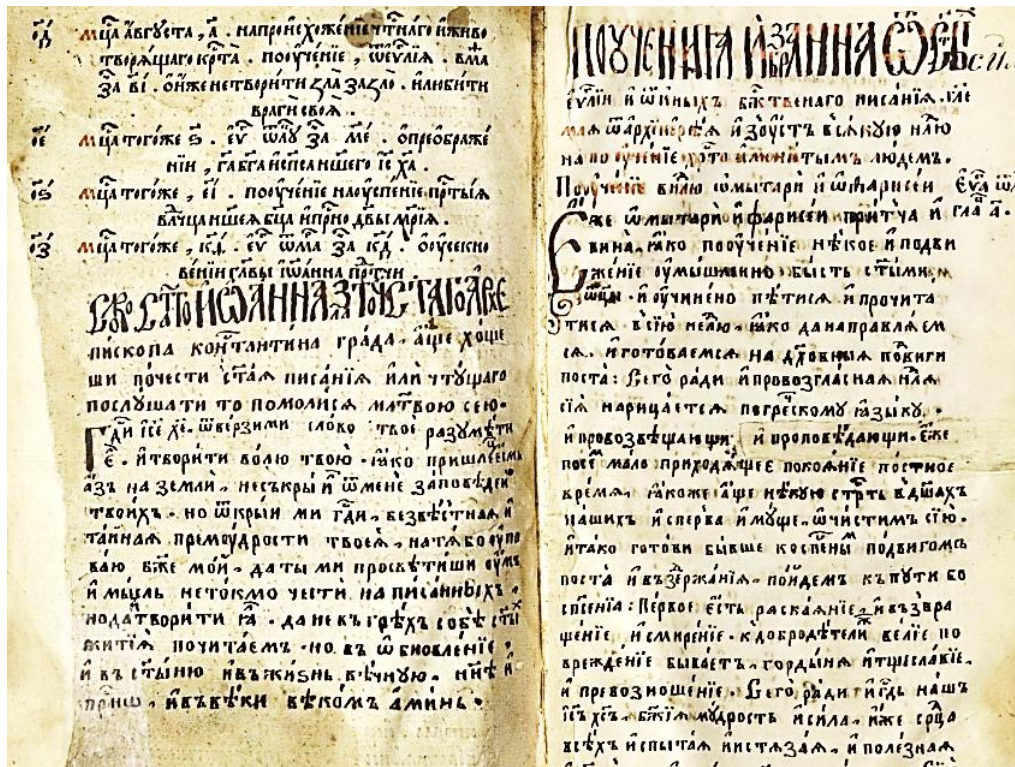 о҃д мц҃а а҆́вгуста , а҃ . напроисхожде́нїе чтⷭ҇нагѡ и҆живо
творѧ́щаго крⷭ҇та̀ . пооуче́нїе , ѿеѵⷢ҇лїѧ . ѿма
за в҃і . ѻ҆́ иже нетвори́ти ѕла̀ за ѕло . и҆люби́ти
врагѝ своѧ̀ .
о҃е мц҃а того́же ѕ҃ . еѵⷢ҇ ѿлꙋ за м҃е . ѻ҆преображе́
нїи , гдⷭ҇а бг҃а и҆сп҃са нш҃его і҆с҃ х҃а .
о҃ѕ мц҃а того́же , є҃і . пооуче́нїе наоуспе́нїе прⷭ҇ты́ѧ
влⷣчца нш҃еѧ бц҃а и҆при́сно дв҃ы мр҃і́ѧ .
о҃з мц҃а того́же , к҃д . еѵⷢ҇ ѿма за к҃д . ѻ҆оусекно
ве́нїи главы̀ і҆ѡа́нна прⷣте́чи
и҆жѐ ст҃а́гѡ и҆ѡа́нна златоꙋ́стагѡ а҆рхїе
пи́скопа конъстанти́на гра́да . а҆́ще хо́ще
ши поче́сти ст҃а́ѧ писа́нїѧ и҆лѝ чтꙋ́щаго
послꙋ́шати то помоли́сѧ мл҃твою се́ю .
Гдⷭ҇и і҆с҃е х҃е . ѿве́рзи ми сло́во твоѐ разꙋмѣ́ти
є҆̀ . и҆твори́ти во́лю твою̀ . ꙗ҆́ко пришле́цъ є҆́смь
а҆́зъ на землѝ . несъкры́й ѿ менѐ за́повѣдей
твои́хъ . но ѿкры́й ми гдⷭ҇и , безвѣ́стнаѧ и҆
та́йнаѧ премоу́дрости твоеѧ̀ , на тѧ̀ бо оу҆по
ва́ю бж҃е мо́й , да ты̀ ми просвѣти́ши оу҆́мъ
и҆ мы́сль нето́кмо честѝ , написа́нныхъ ,
но да твори́ти ꙗ҆̀ . да не въ грѣ́хъ собѣ̀ ст҃ы́х
житїѧ̀ почита́емъ . но въ ѡ҆бновле́нїе ,
и҆ въ ст҃ы́ню и҆ въ жи́знь вѣ́чнꙋю . нн҃ѣ и҆
при́снѡ , и҆ въ вѣ́ки вѣко́мъ а҆ми́нь .
пооуче́нїѧ и҆збра́нна ѿ ст҃а́гѡ
еѵⷢ҇лїѧ и҆ ѿ и҆ны́хъ бжⷭ҇твенаго писа́нїѧ . гл҃е
маѧ ѿ а҆рхїере́ѧ и҆зоу҆́стъ всѧ́кꙋю нлⷣю
на по оу҆че́нїе хрⷭ҇то и҆мени́тымъ лю́демъ .
Поꙋче́нїе в нлⷣю ѡ҆ мытарѝ и҆ ѡ҆ фарисе́и Еѵⷢ҇л ѿ
Е҆́же ѡ҆ мытарѝ и҆ фарисе́и при́тча и҆ гла а҃ .
вина̀ , ꙗ҆́ко пооуче́нїе нѣ́кое и҆ подви
же́нїе оу҆мы́шленно бы́сть ст҃ы́ми
ѻ҆тц҃ы . и҆ оу҆чине́но пѣ́тисѧ и҆ прочита́
тисѧ в сїю̀ нлⷣю , ꙗ҆́ко да направлѧ́ем
сѧ , и҆ гото́ваемсѧ на дꙋхо́вныѧ по́двиги
поста̀ : Сего̀ ра́ди и҆ провозгла́снаѧ нлⷣѧ
сїѧ̀ нарица́етсѧ по гре́ческомꙋ ꙗ҆зы́кꙋ .
и҆ провозвѣща́ющи , и҆ проповѣ́дающи . Е҆́же
по се́м ма́ло приходѧ́щее покоѧ́нїе по́стное
вре́мѧ , ꙗ҆́коже а҆́ще нѣ́кꙋю стрⷭ҇ть в дш҃а́хъ
на́шихъ и҆ спе́рва и҆мꙋ́ще , ѡ҆чи́стим сїю̀ .
и҆ та́ко гото́ви бы́вше коспе́ным по́двигомъ
поста̀ и҆ въздержа́нїѧ , по́йдем къ пꙋтѝ во
сп҃се́нїѧ : Пе́рвое є҆́сть раска́ѧнїе , и҆ възвра
ще́нїе и҆ смире́нїе . к добродѣ́тели же ве́лїе по
врежде́нїе быва́етъ , горды́нѧ и҆ тщесла́вїе ,
и҆ превозноше́нїе . Сего̀ ра́ди и҆ гдⷭ҇ь на́шъ
і҆с҃ъ хс҃ъ , бж҃їѧ мꙋ́дрость и҆ си́ла , и҆́же срⷣца
всѣ́хъ и҆спыта́ѧ и҆ и҆стѧза́ѧ , и҆ поле́знаѧ